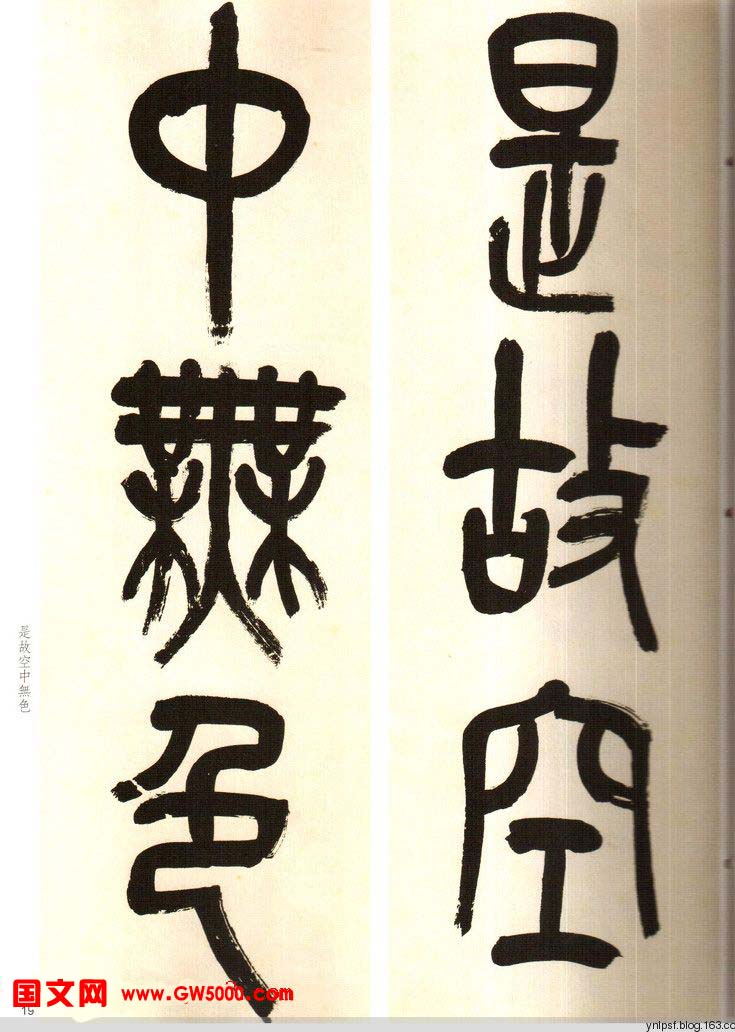 是故空
中無色
是故空中無色
19
国文网 www.GW5000.com
ynlpsf.blog.163.cc